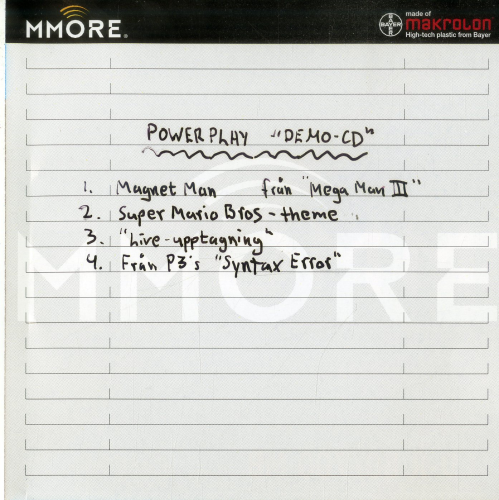 MMORE®
made of
BAYER
makrolon®
High-tech plastic from Bayer
POWERPLAY "DEMO-CD"
1. Magnet Man från "Mega Man III"
2. Super Mario Bros - theme
3. "Live-upptagning"
4. Från P3's "Syntax Error"
MMORE